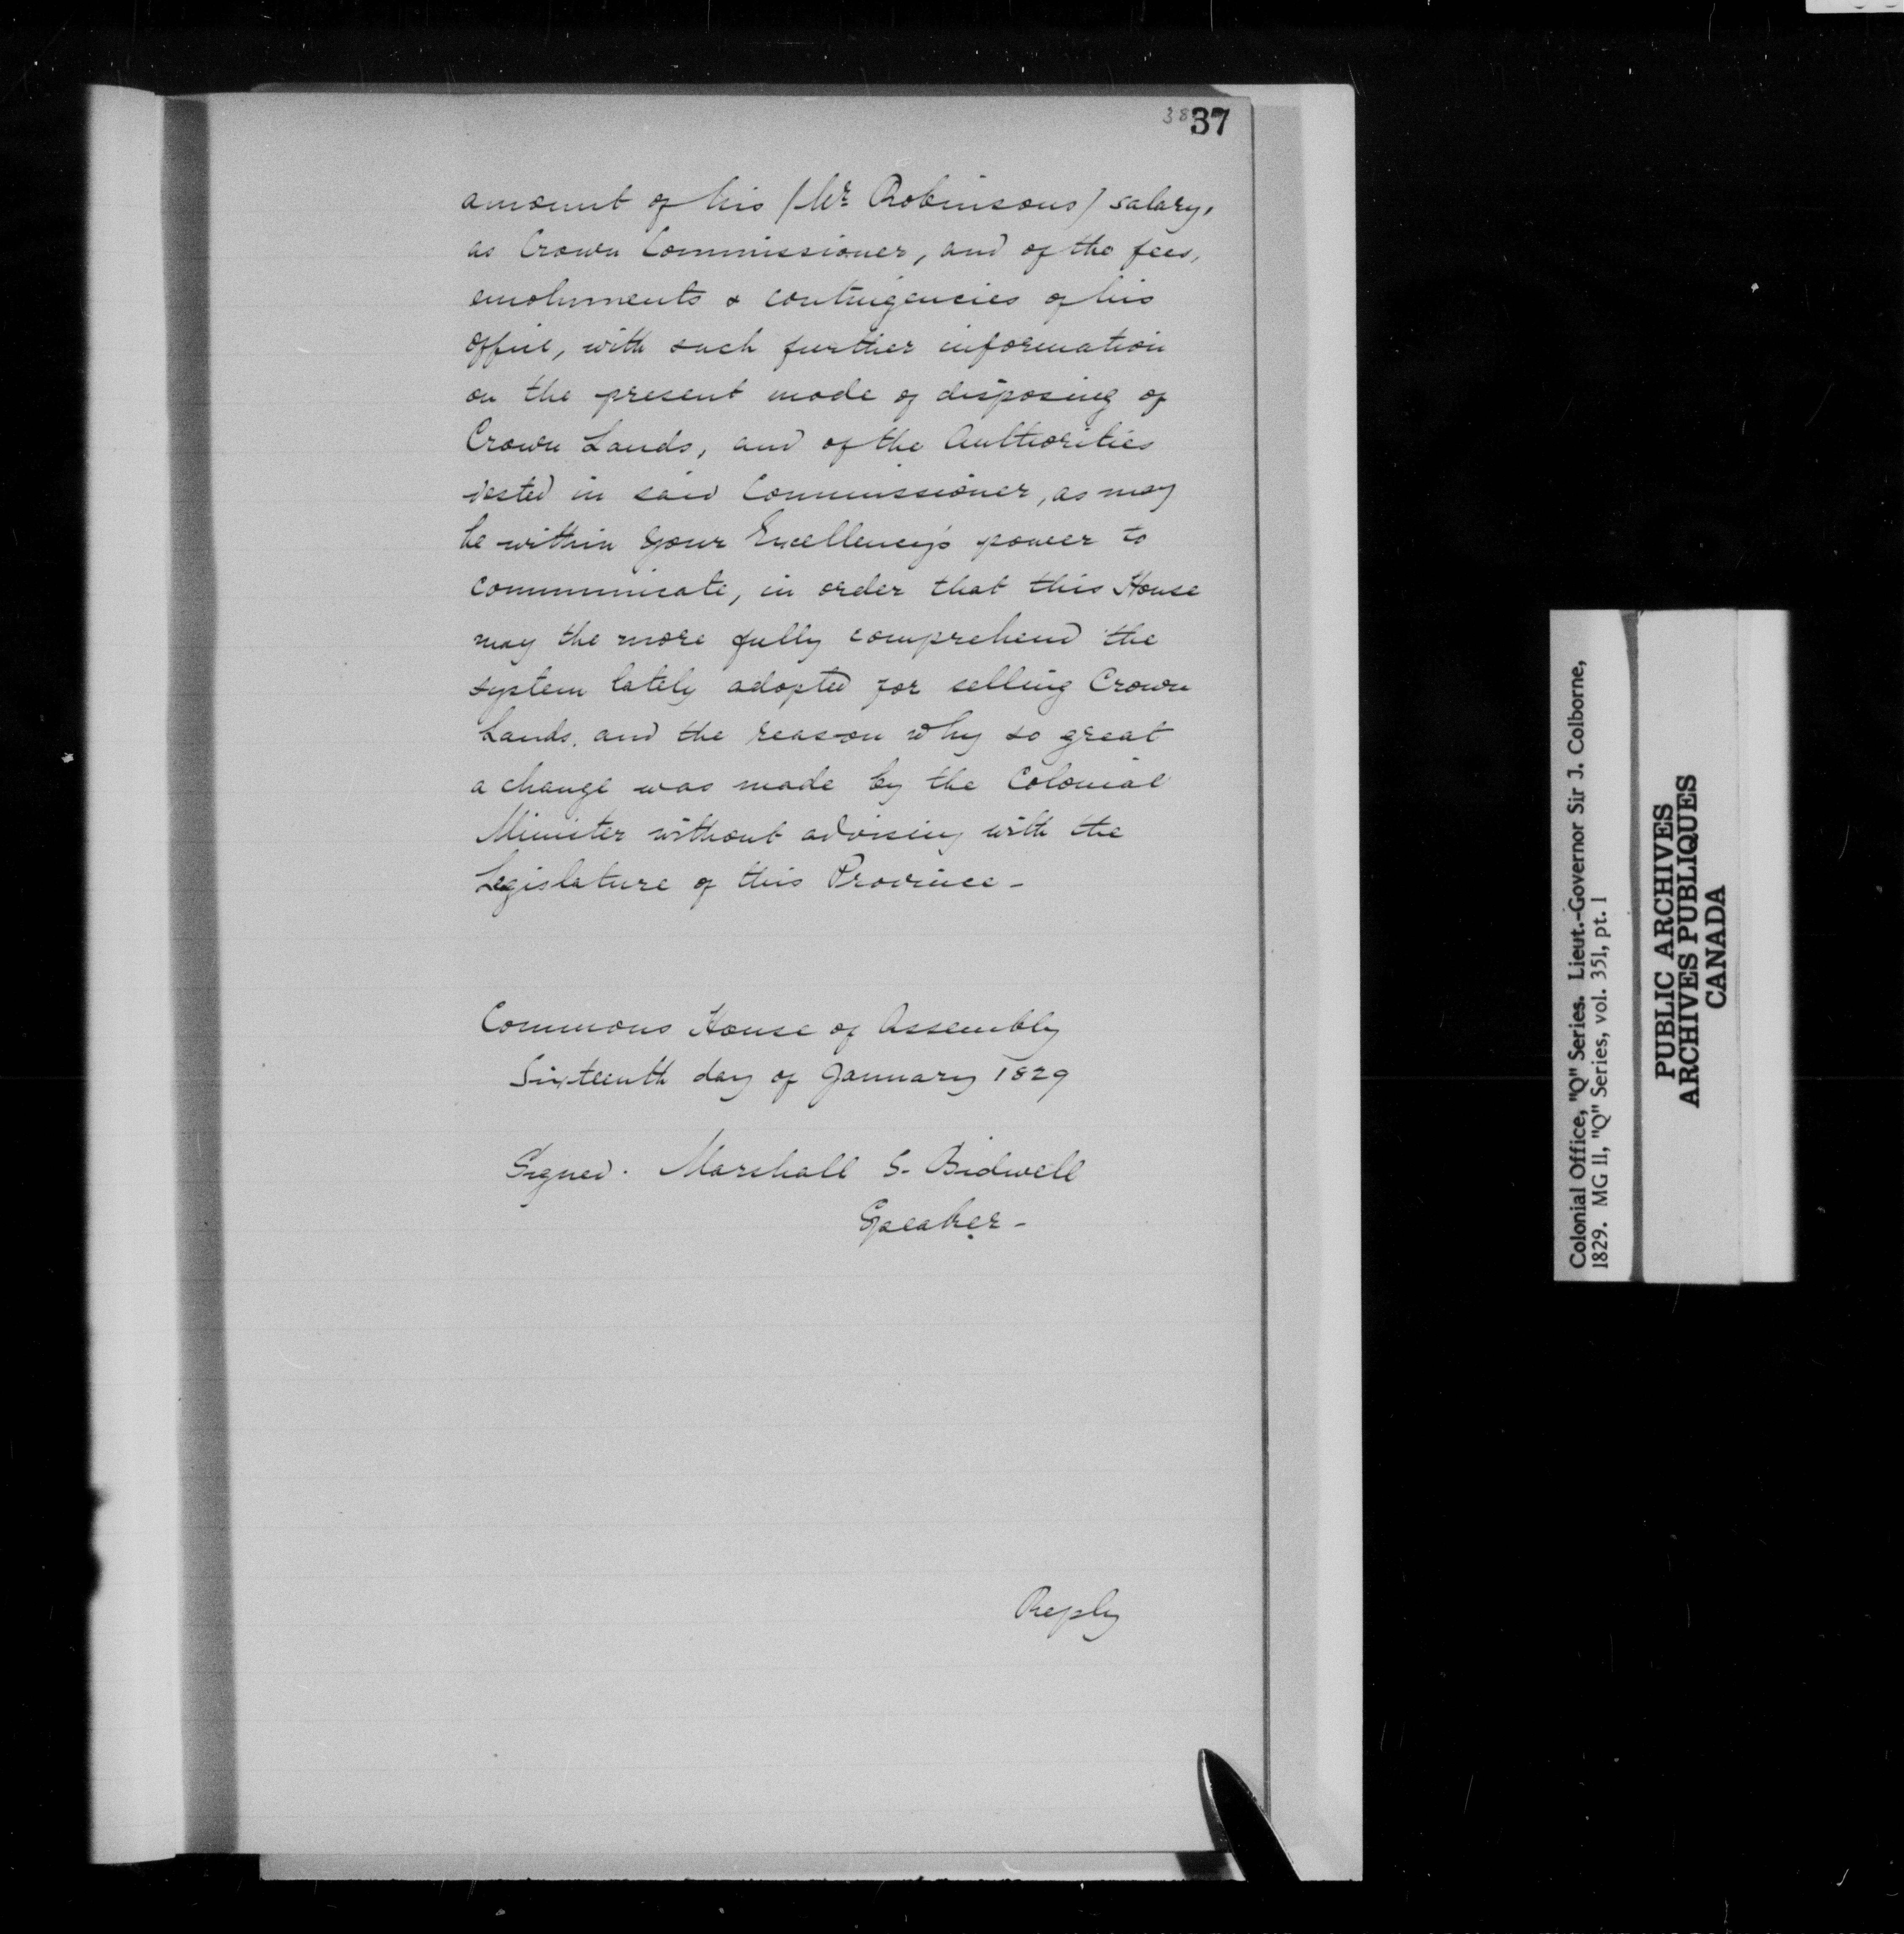 38
37
amount of his (Mr Robinsons) salary,
as Crown Commissioner, and of the fees,
emoluments & contingencies of his
office, with such further information
on the present mode of disposing of
Crown Lands, and of the Authorities
vested in said Commissioner, as may
be within your Excellency's power to
communicate, in order that this House
may the more fully comprehend the
system lately adopted for selling Crown
Lands, and the reason why so great
a change was made by the Colonial
Minister without advising with the
Legislature of this Province -
Commons House of Assembly
Sixteenth day of January 1829
Signed. Marshall S. Bidwell
Speaker -
Reply
Colonial Office, "Q" Series. Lieut.-Governor Sir J. Colborne,
1829. MG 11, "Q" Series, vol. 351, pt. 1
PUBLIC ARCHIVES
ARCHIVES PUBLIQUES
CANADA